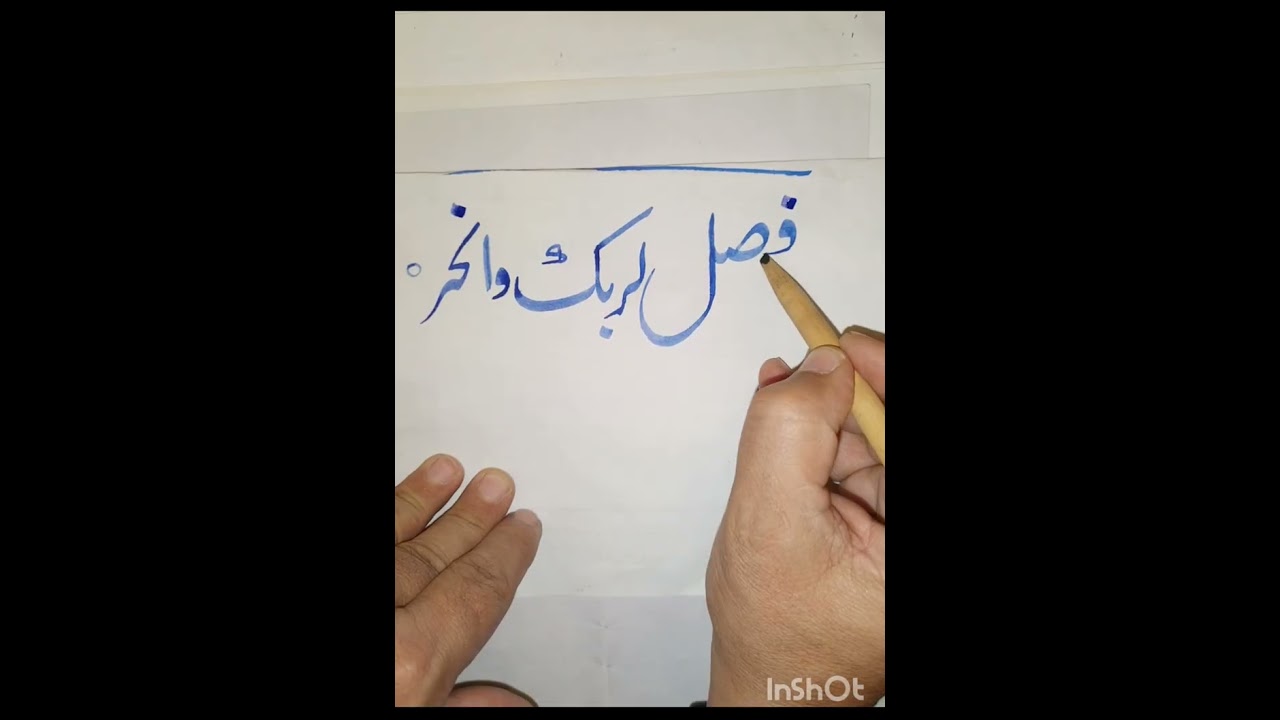 فصل لربک وانحر
InShOt